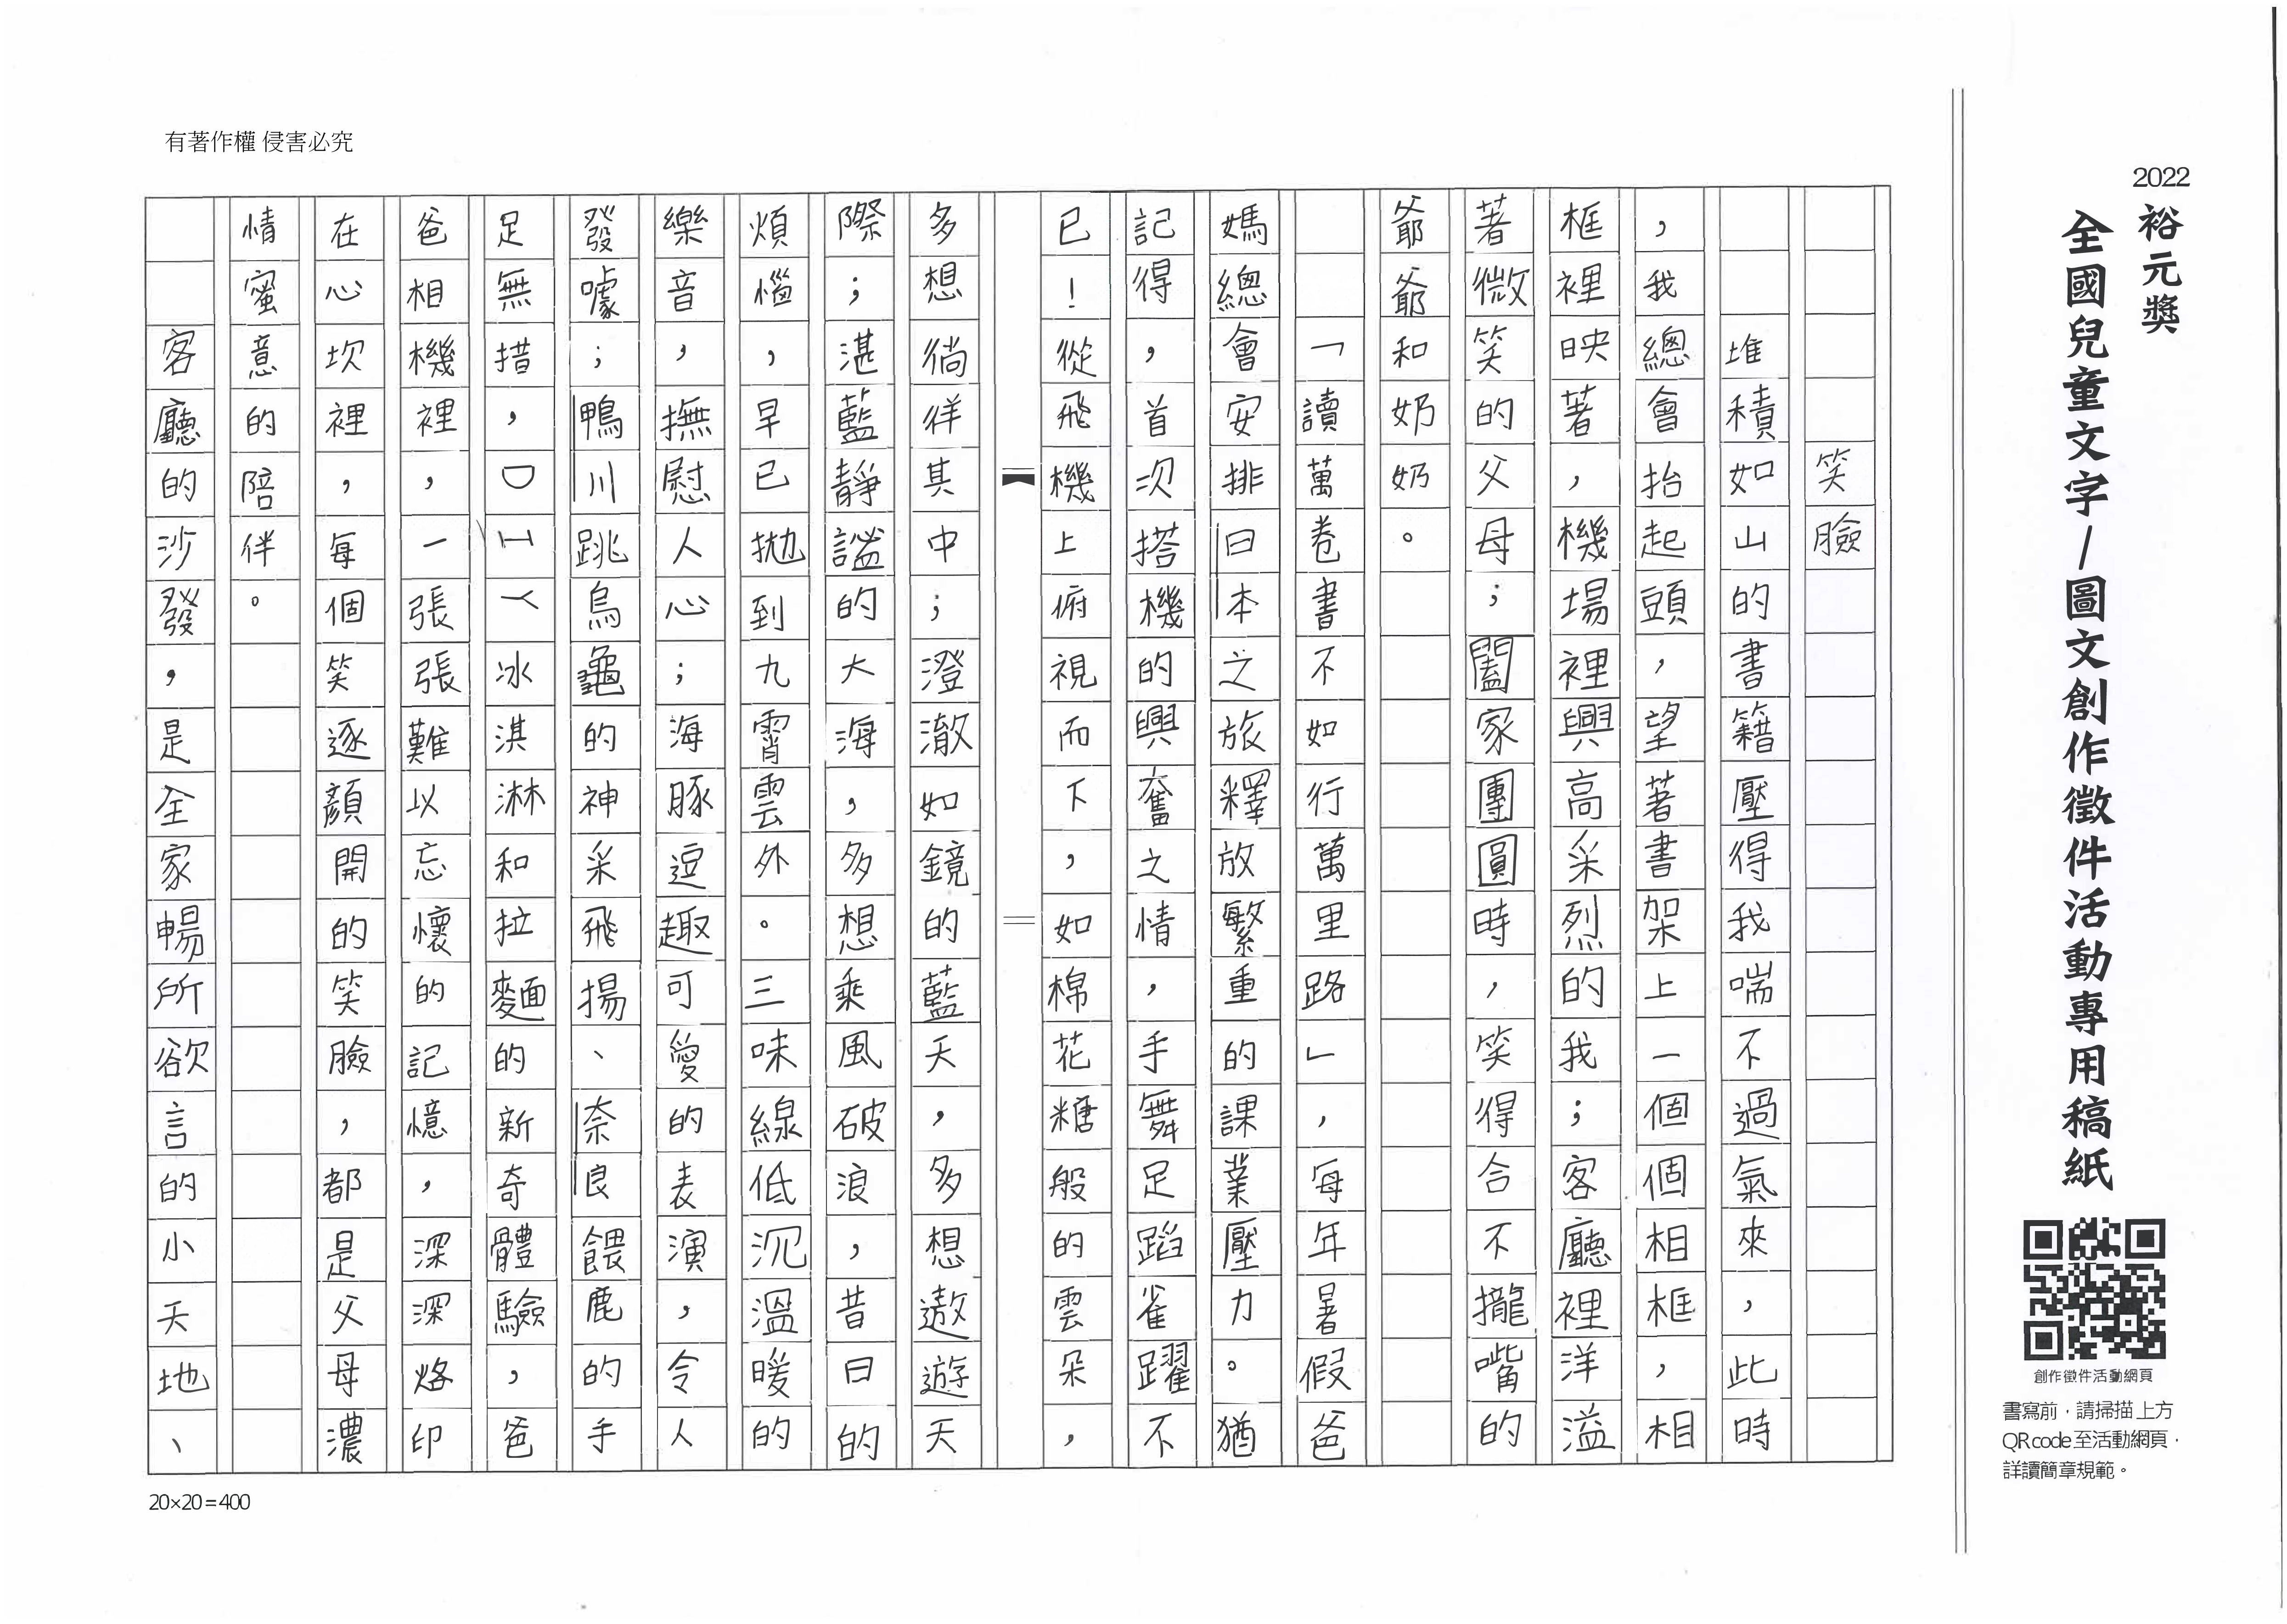 2022
裕元獎
全國兒童文字/圖文創作徵件活動專用稿紙
創作徵件活動網頁
書寫前，請掃描上方
QR code至活動網頁，
詳讀簡章規範。
有著作權 侵害必究
笑臉
堆積如山的書籍壓得我喘不過氣來，此時
，我總會抬起頭，望著書架上一個個相框，相
框裡映著，機場裡興高采烈的我；客廳裡洋溢
著微笑的父母；闔家團圓時，笑得合不攏嘴的
爺爺和奶奶。
「讀萬卷書不如行萬里路」，每年暑假爸
媽總會安排日本之旅釋放繁重的課業壓力。猶
記得，首次搭機的興奮之情，手舞足蹈雀躍不
已！從飛機上俯視而下，如棉花糖般的雲朵，
多想徜徉其中；澄澈如鏡的藍天，多想遨遊天
際；湛藍靜謐的大海，多想乘風破浪，昔日的
煩惱，早已拋到九霄雲外。三味線低沉溫暖的
樂音，撫慰人心；海豚逗趣可愛的表演，令人
發噱；鴨川跳烏龜的神采飛揚、奈良餵鹿的手
足無措，DIY冰淇淋和拉麵的新奇體驗，爸
爸相機裡，一張張難以忘懷的記憶，深深烙印
在心坎裡，每個笑逐顏開的笑臉，都是父母濃
情蜜意的陪伴。
客廳的沙發，是全家暢所欲言的小天地、
20×20=400